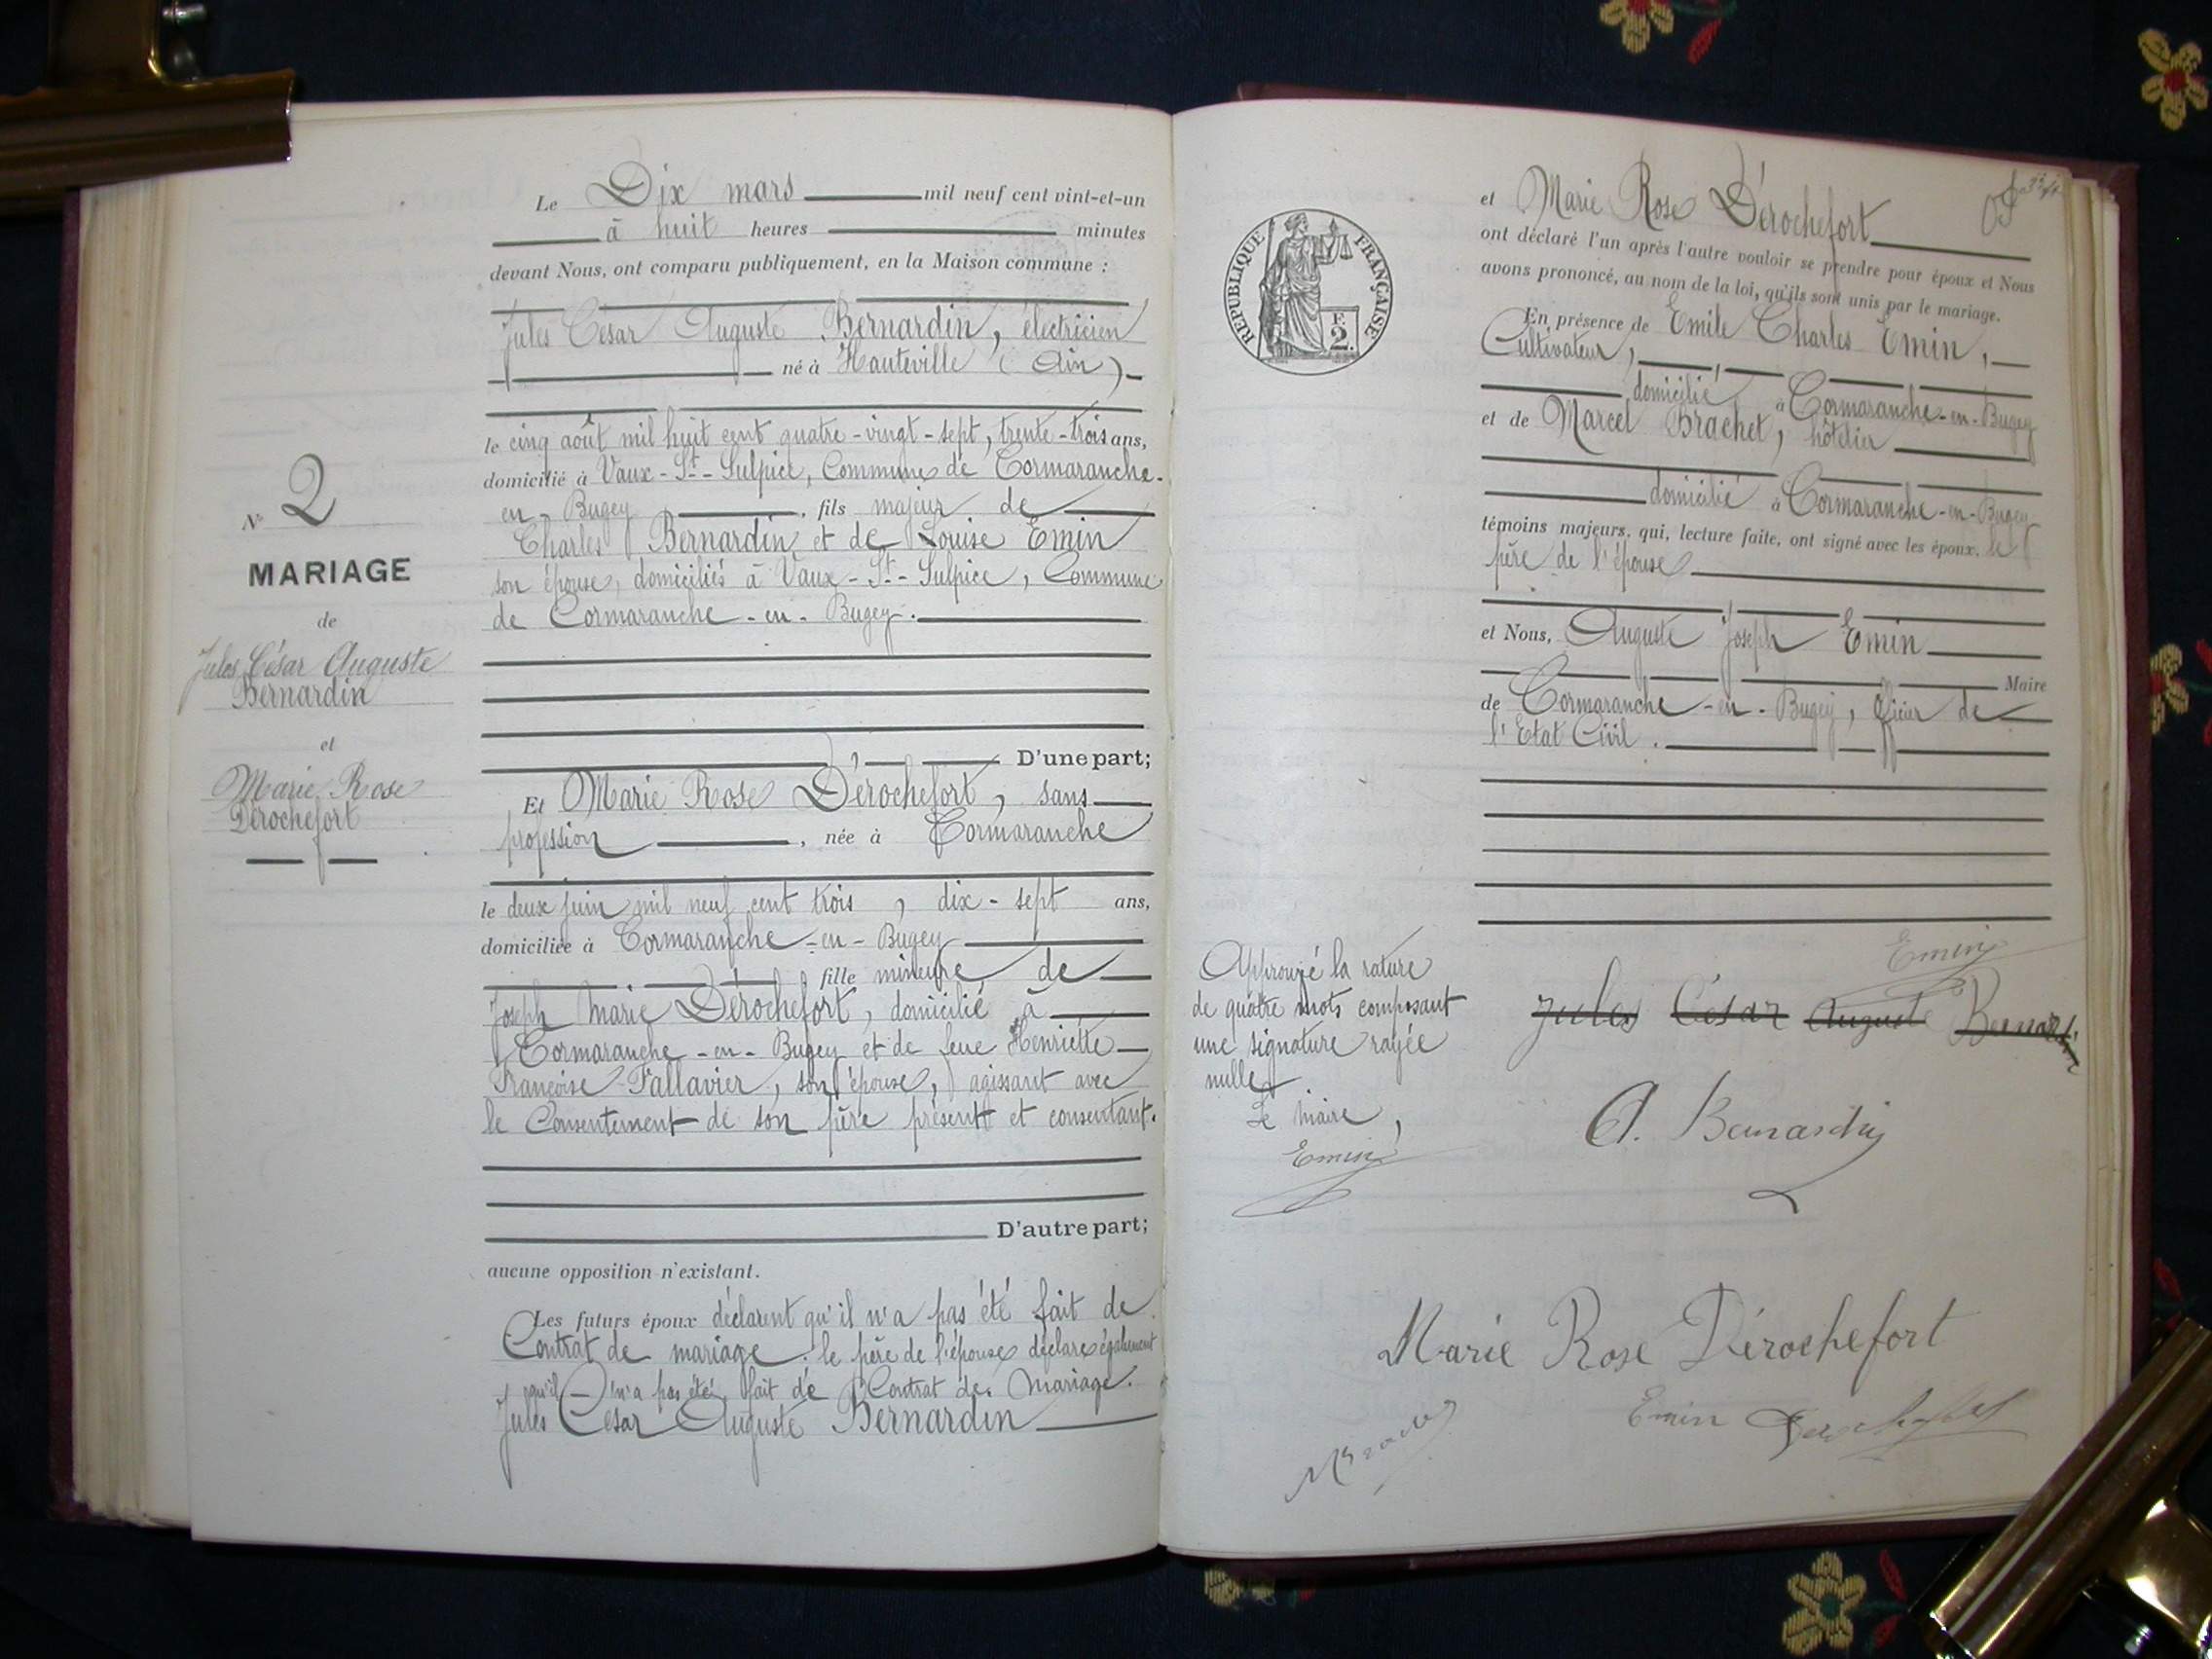 Le Dix mars mil neuf cent vint-et-un
à huit heures minutes
devant Nous, ont comparu publiquement, en la Maison commune :
Jules César Auguste Bernardin, électricien
né à Hauteville (Ain)
le cinq août mil huit cent quatre-vingt-sept, trente-trois ans,
domicilié à Vaux-St-Sulpice, Commune de Cormaranche-
en-Bugey, fils majeur de
Charles Bernardin et de Louise Emin
son épouse, domiciliés à Vaux-St-Sulpice, Commune
de Cormaranche-en-Bugey.
D'une part;
Et Marie Rose Dérochefort, sans
profession, née à Cormaranche
le deux juin mil neuf cent trois, dix-sept ans,
domiciliée à Cormaranche-en-Bugey
fille mineure de
Joseph Marie Dérochefort, domicilié à
Cormaranche-en-Bugey et de feue Henriette
Françoise Fallavier, son épouse, agissant avec
le Consentement de son père présent et consentant.
D'autre part;
aucune opposition n'existant.
Les futurs époux déclarent qu'il n'a pas été fait de
Contrat de mariage. le père de l'épouse déclare également
qu'il n'a pas été fait de Contrat de Mariage.
Jules César Auguste Bernardin
No 2
MARIAGE
de
Jules César Auguste
Bernardin
et
Marie Rose
Dérochefort
et Marie Rose Dérochefort
ont déclaré l'un après l'autre vouloir se prendre pour époux et Nous
avons prononcé, au nom de la loi, qu'ils sont unis par le mariage.
En présence de Emile Charles Emin,
Cultivateur,
domicilié à Cormaranche-en-Bugey
et de Marcel Brachet, hôtelier
domicilié à Cormaranche-en-Bugey
témoins majeurs, qui, lecture faite, ont signé avec les époux, le
père de l'épouse
et Nous, Auguste Joseph Emin
Maire
de Cormaranche-en-Bugey, officier de
l'Etat Civil.
RÉPUBLIQUE FRANÇAISE
F.
2.
Approuvé la rature
de quatre mots composant
une signature rayée
nulle
Le Maire,
Emin
Emin
Jules César Auguste Bernardin
A. Bernardin
Marie Rose Dérochefort
Emin Derochefort